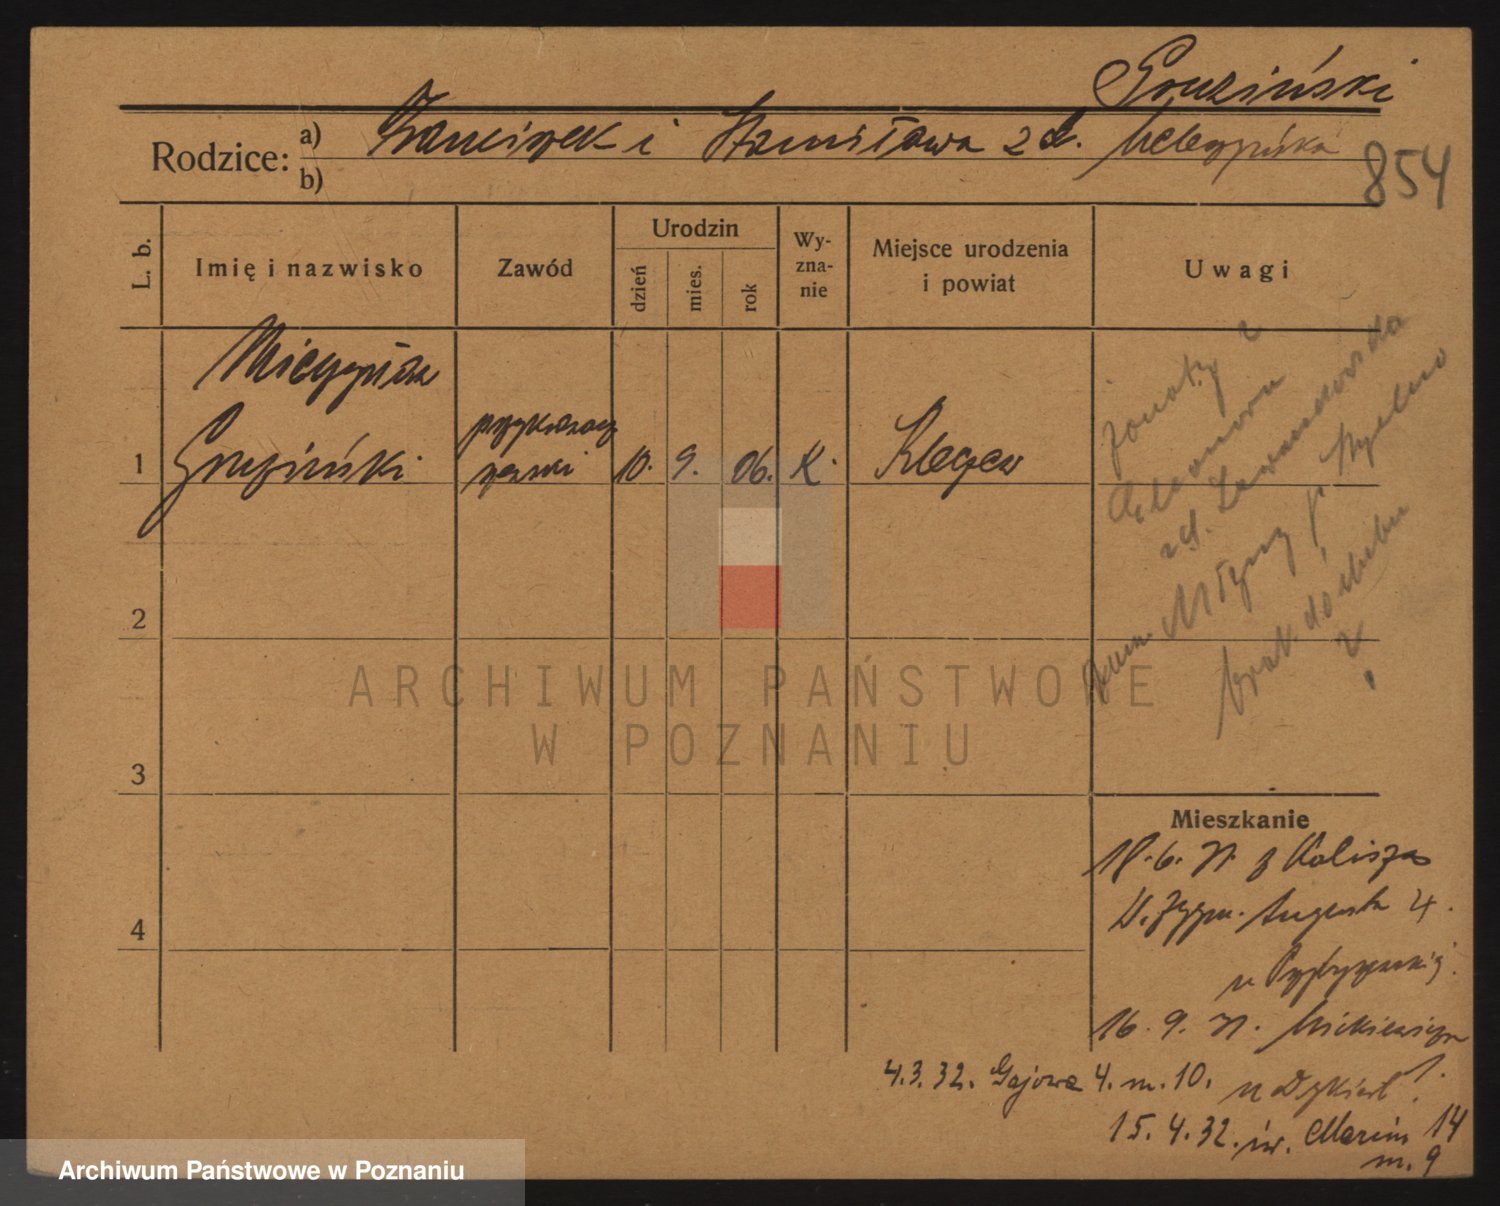 Gruziński
Rodzice: a) Franciszek i Stanisława z d.
b)
854
L. b.
Imię i nazwisko
Zawód
Urodzin
dzień
mies.
rok
Wy-
zna-
nie
Miejsce urodzenia
i powiat
Uwagi
Mieczysław
1 Gruziński 10. 9. 06. K. Kłecew
żonaty z
zd. Lewandowska
Młyny p. Strzelno
brak dowodu
?
2
ARCHIWUM PAŃSTWOWE
W POZNANIU
3
4
Mieszkanie
18.6.31 z Kalisza
Zygm. Augusta 4.
u Przybyszewskiej
16.9.31. Mickiewicza
4.3.32. Gajowa 4. m. 10.
15.4.32. św. Marcin 14
m. 9
Archiwum Państwowe w Poznaniu